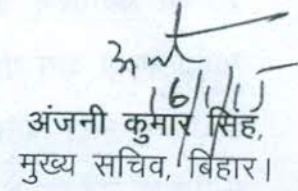 16/1/15
अंजनी कुमार सिंह,
मुख्य सचिव, बिहार।